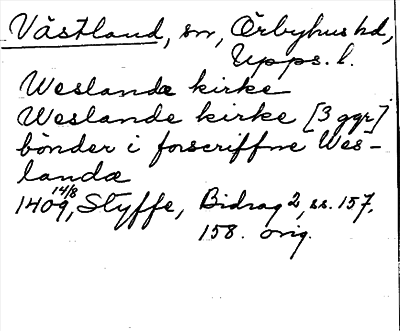 Västland, sn, Örbyhus hd,
Upps. l.
Weslanda kirke
Weslande kirke [3 ggr]
bönder i forscriffne Wes-
landa
1409 14/8, Styffe, Bidrag 2, ss. 157,
158. orig.